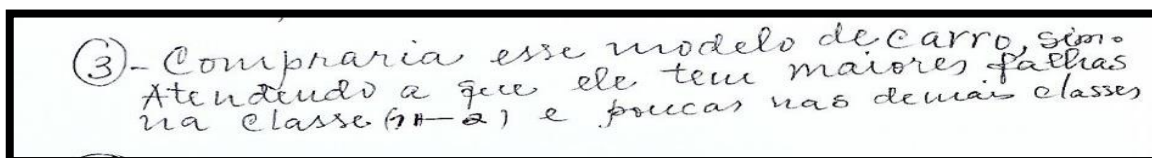 ③ - Compraria esse modelo de carro, sim.
Atendendo a que ele tem maiores falhas
na classe e poucas nas demais classes